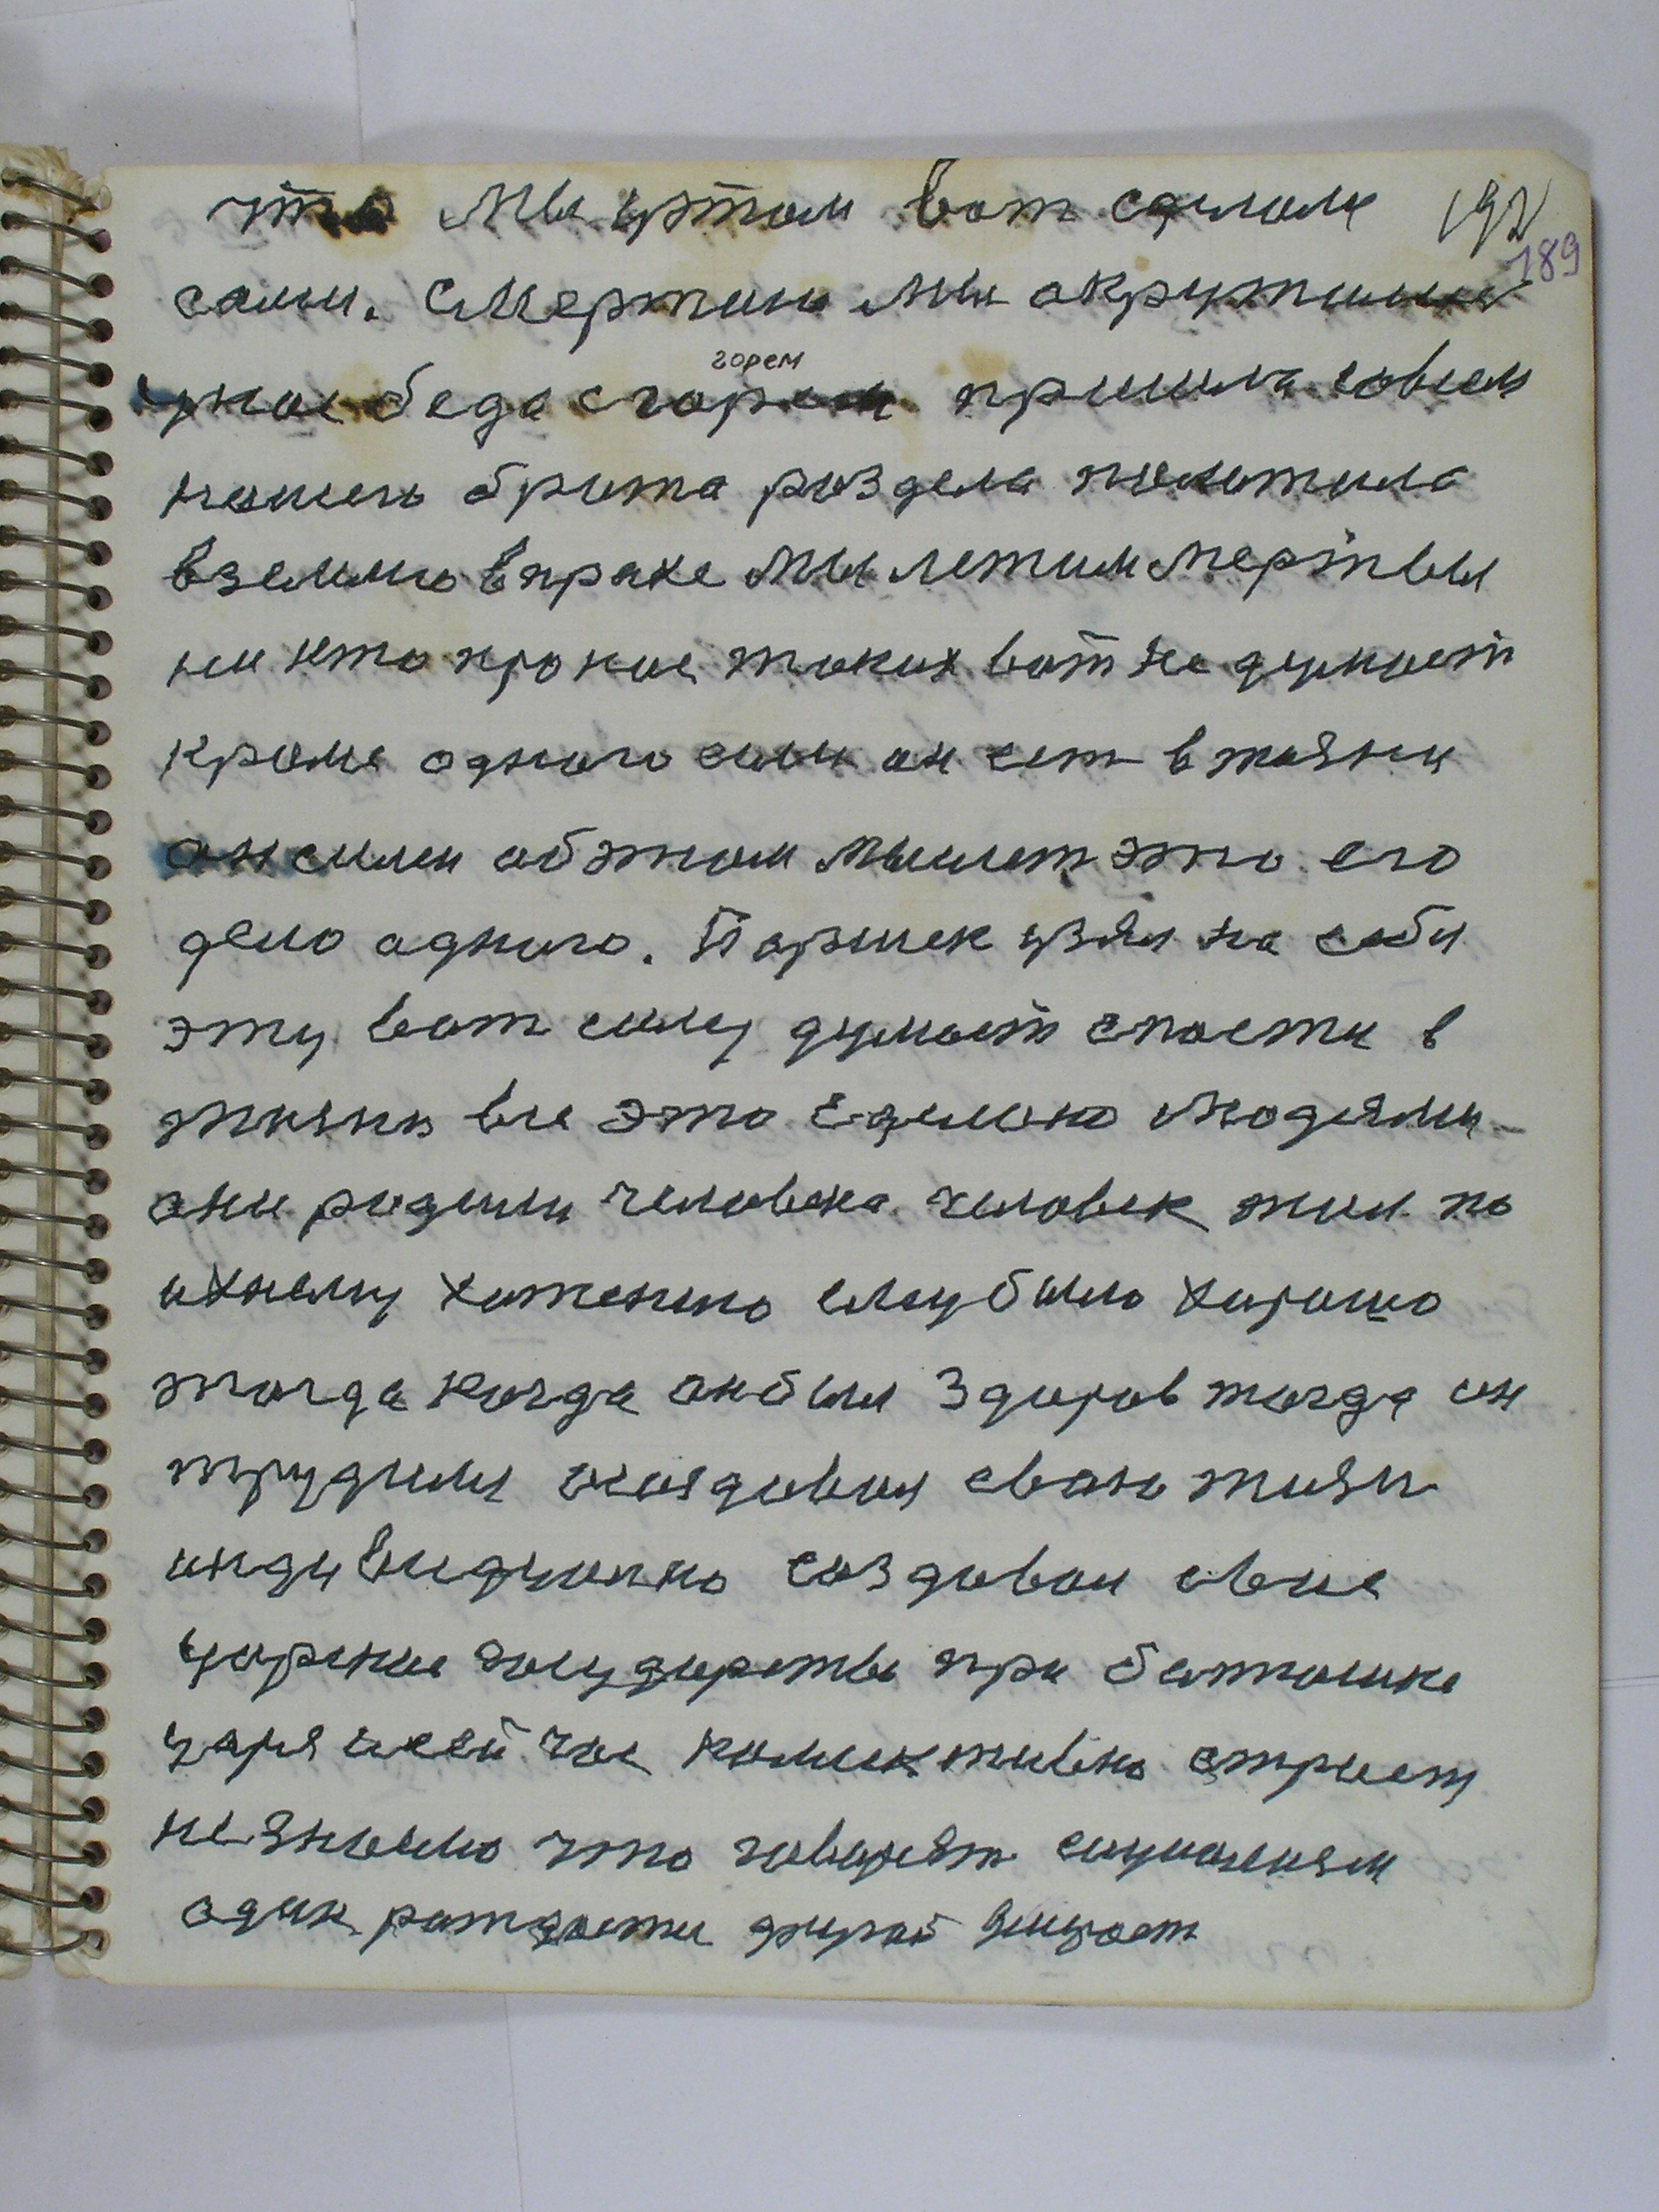 что мы цртом вот сделали 192
189
сами. Смертию мы окружилис
унас беда сгорем пришла совсем
горем
нашего брата раздела положила
вземлю впрахе мы лежим мертвы
ни кто про нас таких вот не думает
кроме одного сам он есть вжизни
он сили обэтом мыслит это его
дело одного. Паршек узял на себя
эту вот силу думает спасти в
жизни все это сделано людями
они родили человека человек жил по
ихнему хотению ему было хорошо
тогда когда онбыл здоров тогда он
трудился исоздовал свою жизнь
индивидуално создовал свое
царское государство при батюшке
царя исейчас колективно строем
незнаемо что говорят социолизм
один рождается другой умирает